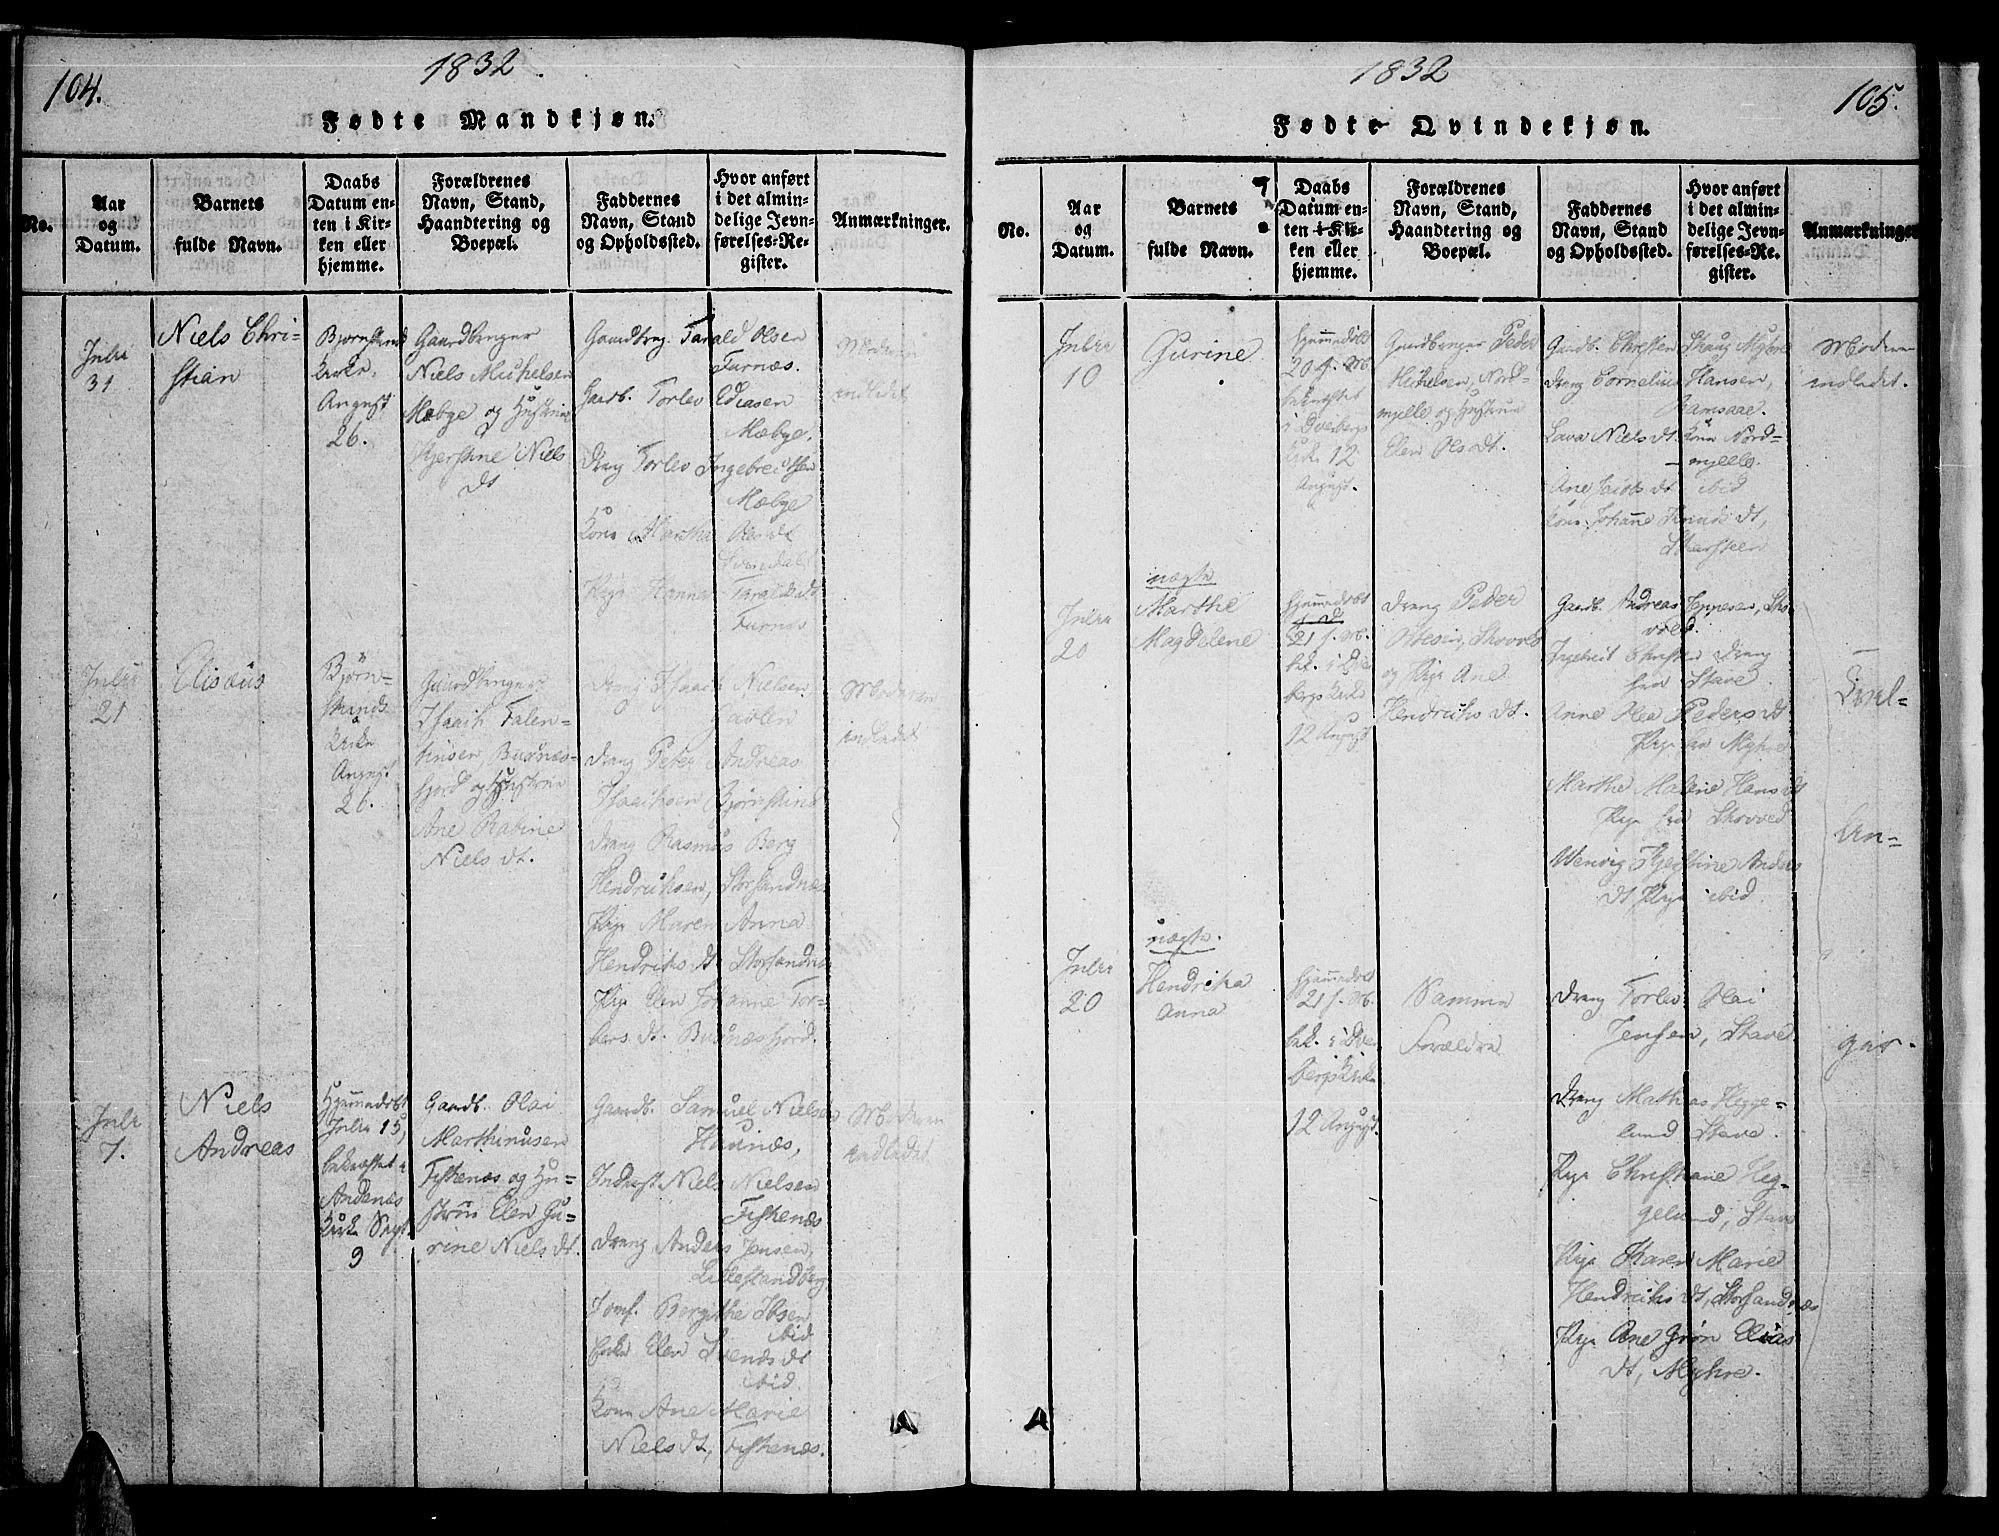 104.
1832
Fødte Mandkjøn.
No.
Aar
og
Datum.
Barnets
fulde Navn.
Daabs
Datum en-
ten i Kir-
ken eller
hjemme.
Forældrenes
Navn, Stand,
Haandtering og
Boepæl.
Faddernes
Navn, Stand
og Opholdssted.
Hvor anført
i det almin-
delige Jevn-
førelses-Re-
gister.
Anmærkninger.
Juli
31
Niels Chri-
stian
Kirke,
August
26.
Gaardbruger
Niels Michelsen
Mæbye og Hustrue
Niels
dt
Olsen
Furnæs.
Gaardb. Torlev
Mæbye.
Dreng Torlev Ingebreitsen
Mæbye
Kone Marthe Ols dt
Pige Hanna Taralds dt
Furnæs
Moderen
indledet
Juli
21
Elisæus
Bjørn-
Kirke
August
26.
Gaardbruger
Isaach
og Hustrue
Ane Rabine
Niels dt.
Dreng Isaach Nielsen
Dreng Peter Andreas
Isaachsen
Dreng Rasmus Berg
Hendrichsen, Storsandnæs
Pige Maren Anna
Hendrichs dt Storsandnæs
Pige Elen Johanne Tor-
bers. dt.
Moderen
indledet
Juli
7.
Niels
Andreas
Hjemmedøbt
Juli 15,
bekræftet i
Andenæs
Kirke Sept
9
Gaardb. Olai
Marthinusen
Fiskenæs og Hu-
strue Elen Gu-
rine Niels dt.
Gaardb. Samuel Nielsen
Haunæs,
Inderst Niels Nielsen
Fiskenæs
Dreng Anders Jensen,
Jomf. Birgithe Ibsen
ibid
Enke Elen Svends dt
ibid.
Kone Ane Marie
Niels dt, Fiskenæs.
Moderen
indledet
1832
105.
Fødte Qvindekjøn.
No.
Aar
og
Datum.
Barnets
fulde Navn.
Daabs
Datum en-
ten i Kir-
ken eller
hjemme.
Forældrenes
Navn, Stand,
Haandtering og
Boepæl.
Faddernes
Navn, Stand
og Opholdssted.
Hvor anført
i det almin-
delige Jevn-
førelses-Re-
gister.
Anmærkninger
Juli
10
Gurine
Hjemmedøbt
20 s. M.
bekræftet
i Dverbergs
Kirke 12
August.
Gaardbruger Peder
Michelsen, Nord-
mjelle og Hustrue
Elen Ols dt.
Gaardb. Christen Skaug Myhre
Dreng Cornelius Hansen,
Ramsaae.
Lava Niels dt Kone Nord-
mjelle.
Ane Jacobs dt ibid
Kone Johanne Knuds dt,
Moderen
indledet.
Juli
20
uægte
Marthe
Magdelene
Hjemmedøbt
21 s. M.
bek. i Dver
bergs Kirke
12 August
Dreng Peder
og Pige Ane
Hendrichs dt.
Gaardb. Andreas Jeppesen,
Ingebreit Christen Dreng
fra Stave
Anne Olea Peders dt
Pige fra Myhre
Marthe Malene Hans dt
Pige fra
Anders
dt Pige ibid.
Juli
20
uægte.
Hendrika
Anna
Hjemmedøbt
21 s. M.
bek. i Dver
bergs Kirke
12 August.
Samme
Forældre
Dreng Torlev Olai
Jensen, Stave
Dreng Mathias Hegge-
lund Stave.
Pige Christiane Heg-
gelund, Stave
Pige Karen Marie
Hendrichs dt, Storsandnæs
Pige Ane Grøn Elias
dt, Myhre.